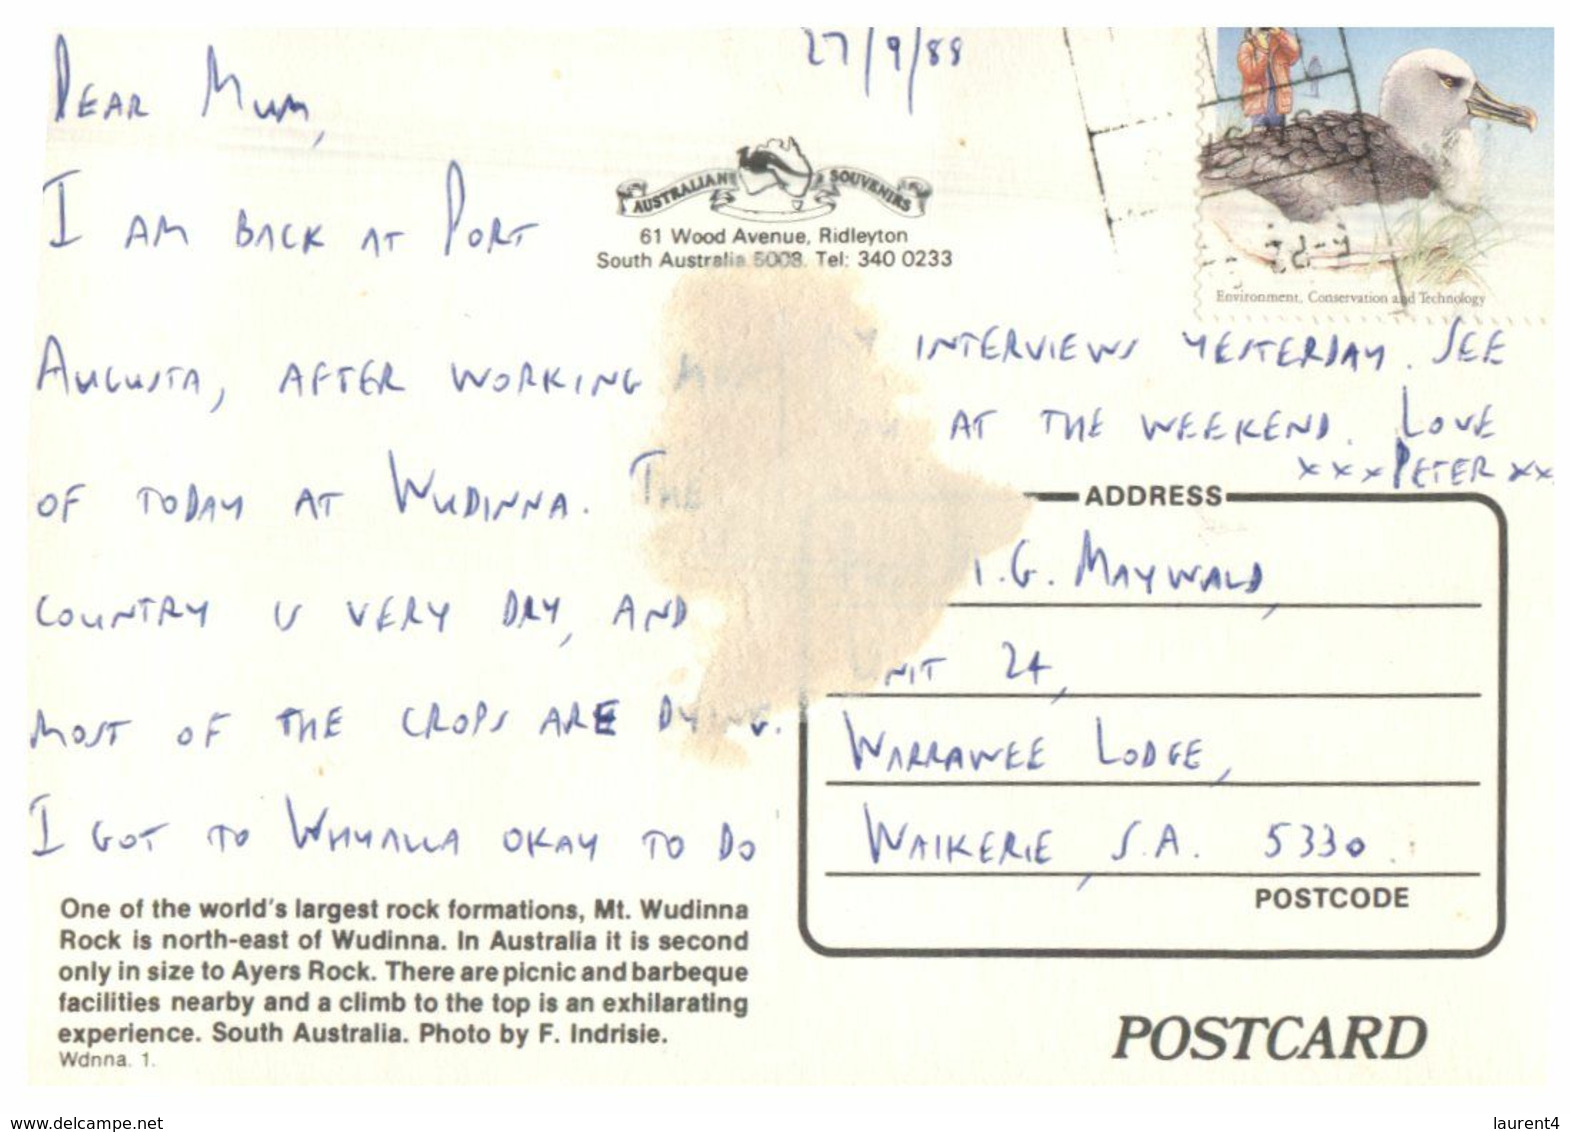 27/9/88
DEAR MUM,
I AM BACK AT PORT
AUGUSTA, AFTER WORKING MOST
OF TODAY AT WUDINNA. THE
COUNTRY IS VERY DRY, AND
MOST OF THE CROPS ARE DYING.
I GOT TO WHYALLA OKAY TO DO
MY INTERVIEWS YESTERDAY. SEE
YOU AT THE WEEKEND. LOVE
xxxPETERxx
AUSTRALIAN SOUVENIRS
61 Wood Avenue, Ridleyton
South Australia 5008. Tel: 340 0233
Environment, Conservation and Technology
ADDRESS
G. MAYWALD,
UNIT 24,
WARRAWEE LODGE,
WAIKERIE, S.A. 5330.
POSTCODE
One of the world's largest rock formations, Mt. Wudinna
Rock is north-east of Wudinna. In Australia it is second
only in size to Ayers Rock. There are picnic and barbeque
facilities nearby and a climb to the top is an exhilarating
experience. South Australia. Photo by F. Indrisie.
Wdnna. 1.
POSTCARD
www.delcampe.net
laurent4